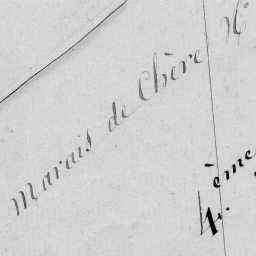 Marais de Chère
4.ème